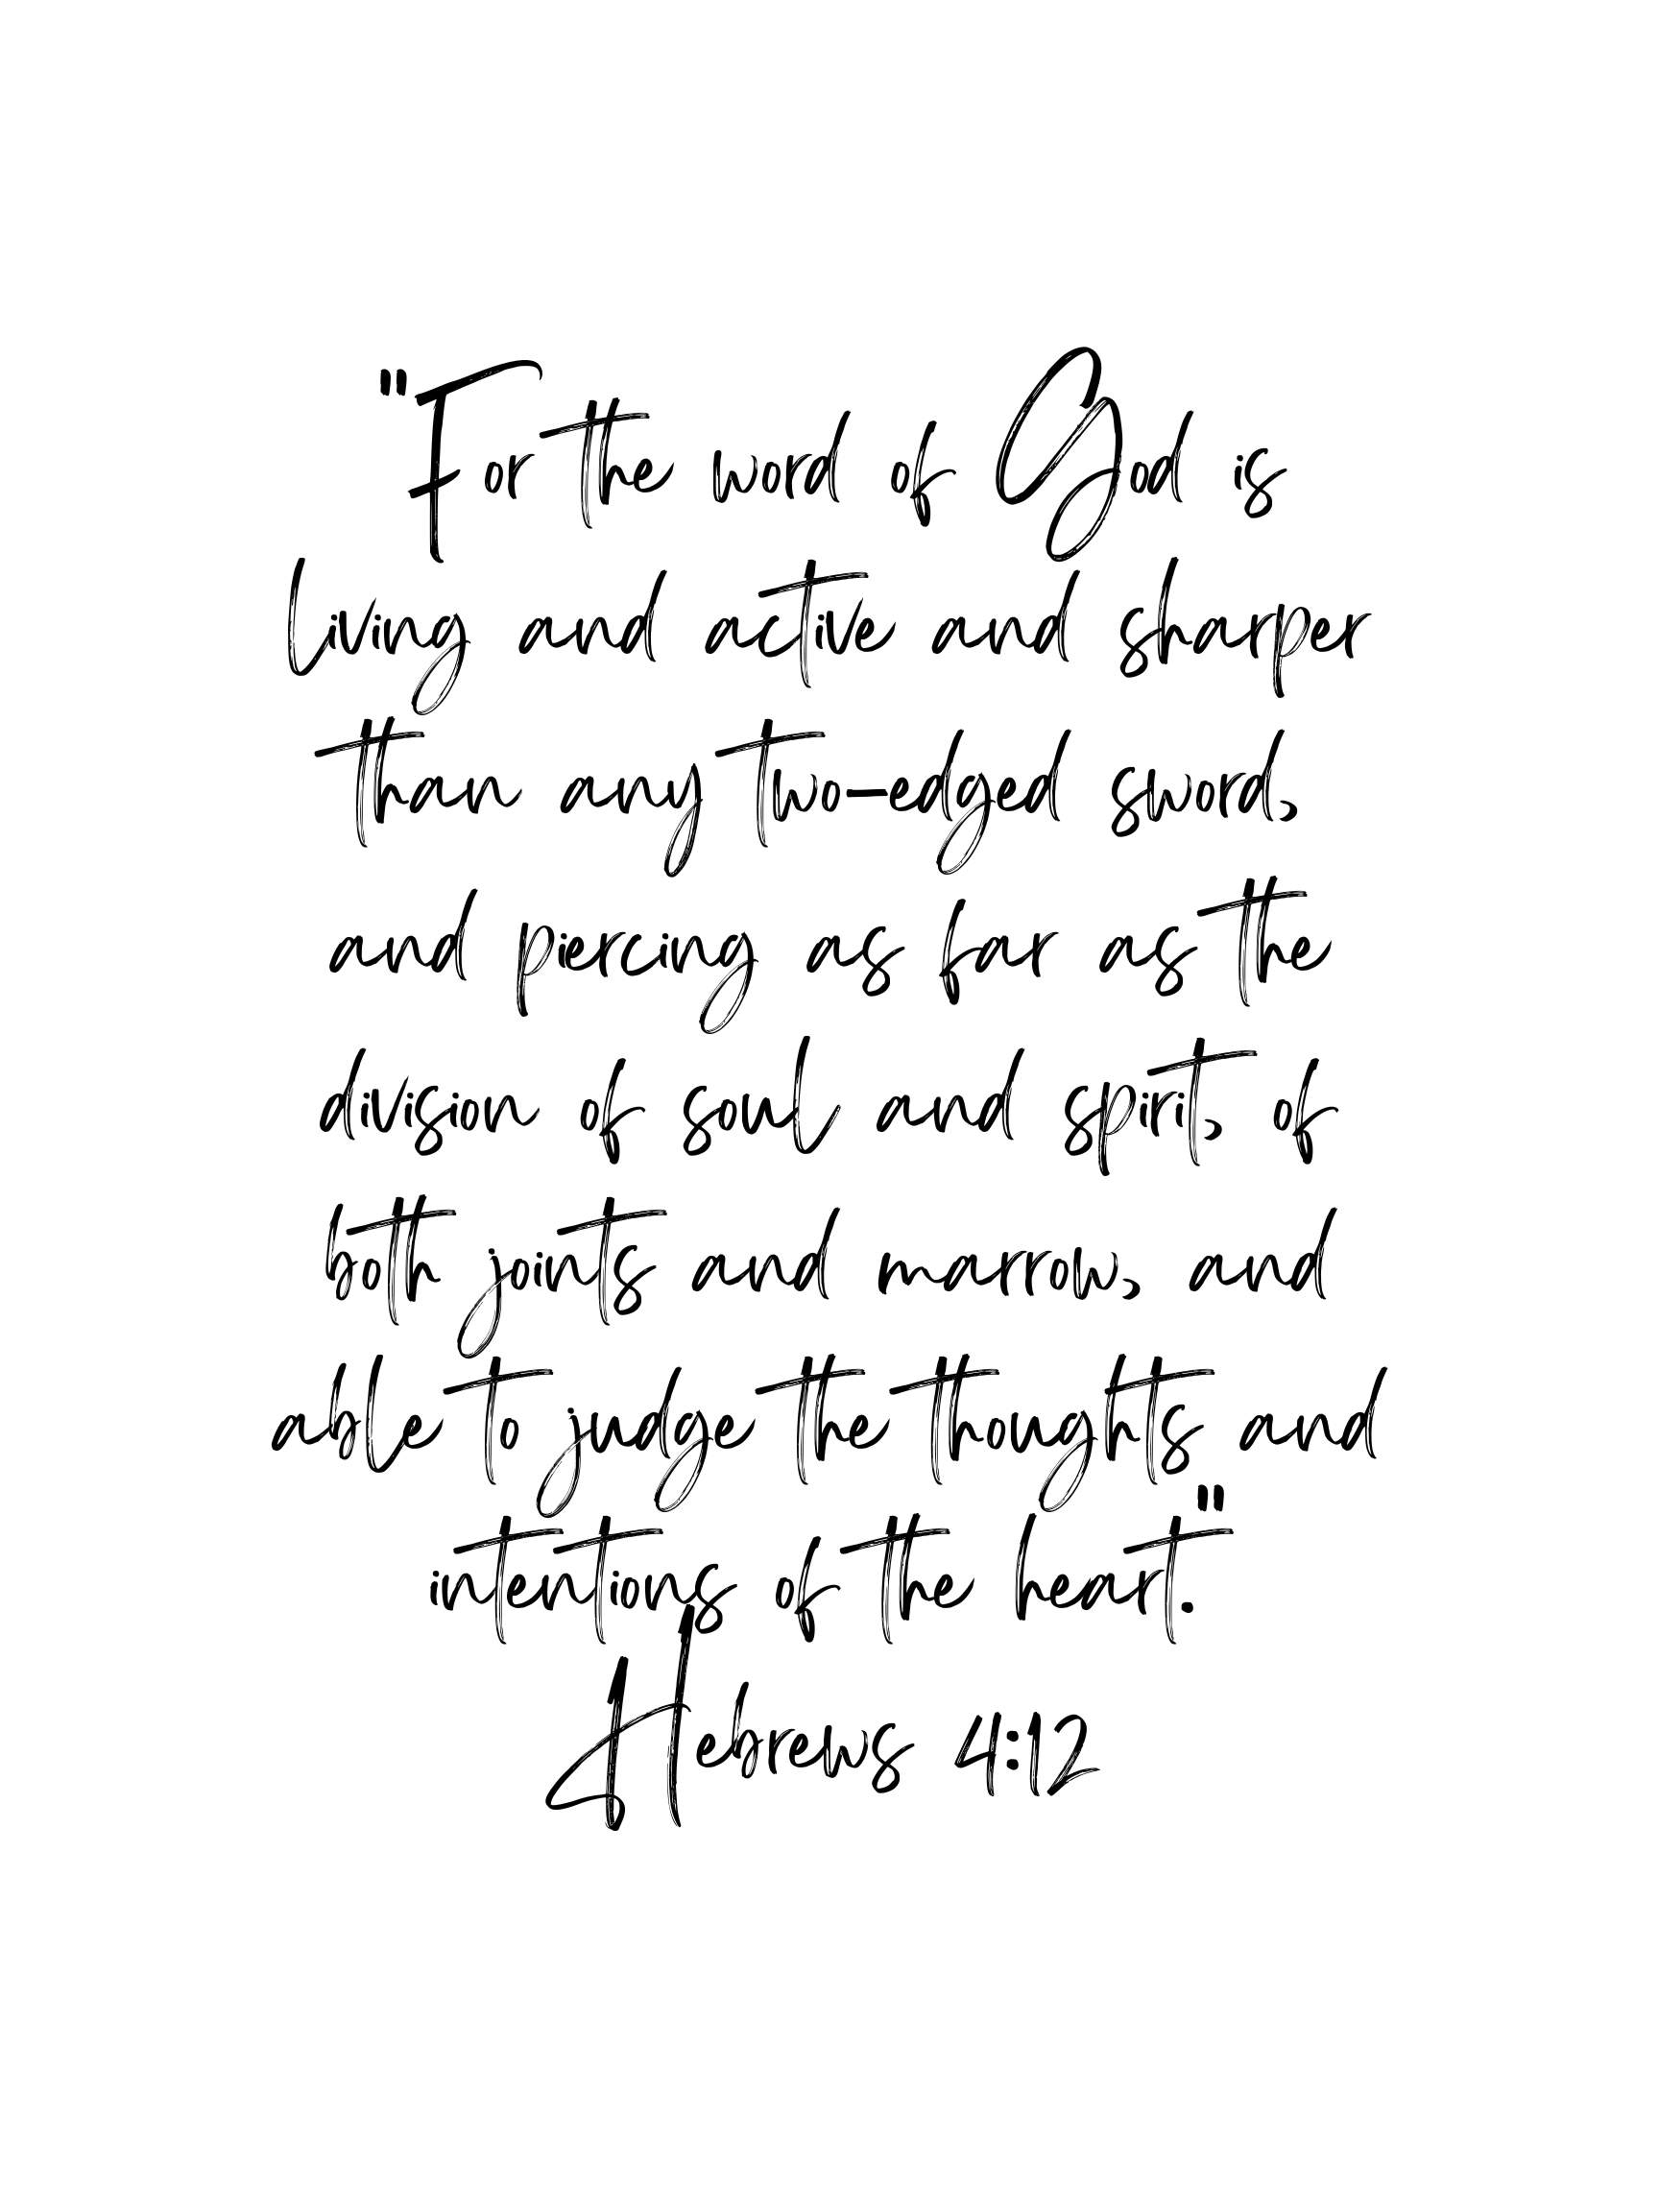 "For the word of God is
living and active and sharper
than any two-edged sword,
and piercing as far as the
division of soul and spirit, of
both joints and marrow, and
able to judge the thoughts and
intentions of the heart."
Hebrews 4:12